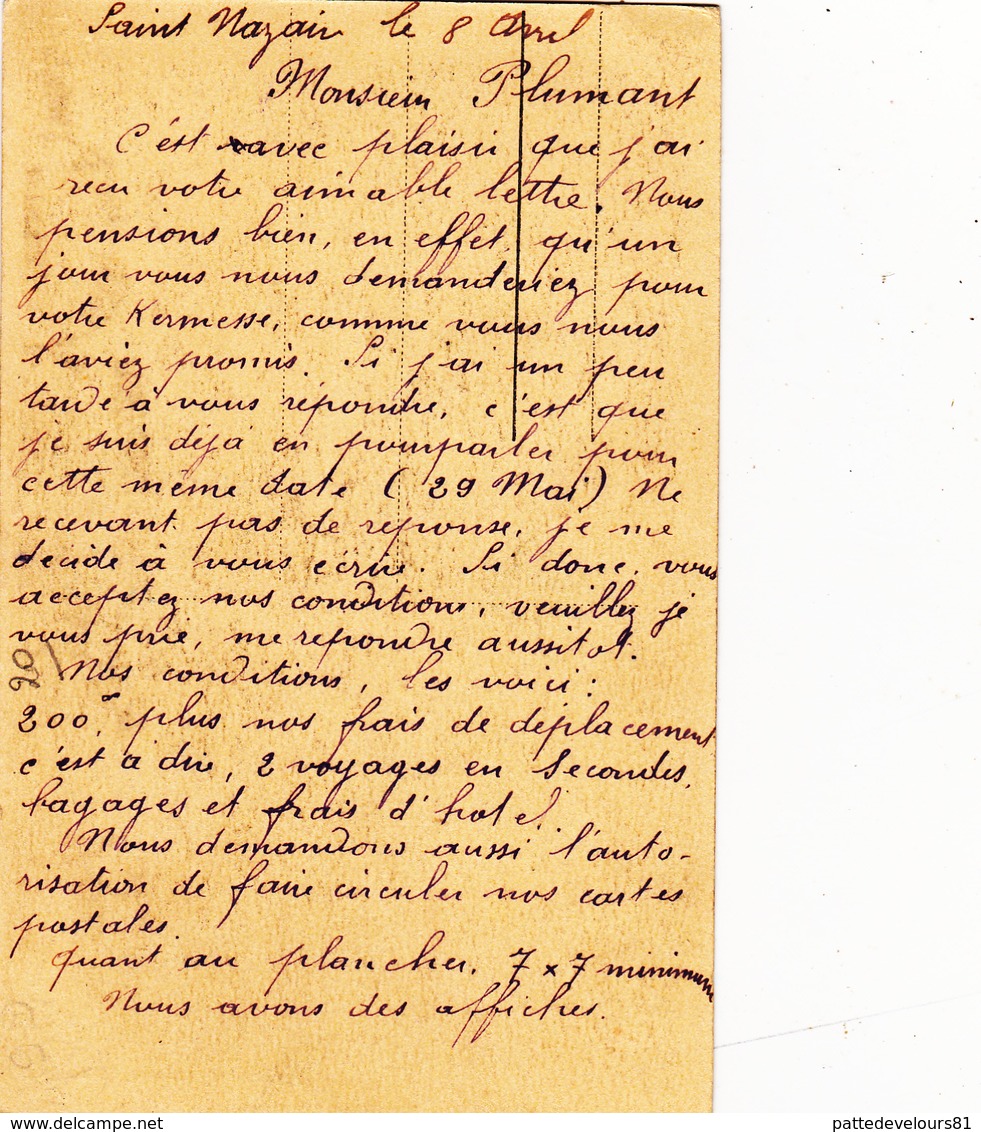 Saint Nazair le 8 Avril
Monsieur Plumant
C'est avec plaisir que j'ai
recu votre aimable lettre. Nous
pensions bien, en effet, qu'un
jour vous nous demanderiez pour
votre Kermesse, comme vous nous
l'aviez promis. Si j'ai un peu
tardé à vous répondre, c'est que
je suis déjà en pourparler pour
cette même date (29 Mai) Ne
recevant pas de reponse, je me
decide à vous ecrire. Si donc, vous
acceptez nos conditions, veuillez je
vous prie, me repondre aussitot.
Nos conditions, les voici :
200, plus nos frais de déplacement
c'est à dire, 2 voyages en secondes,
bagages et frais d'hotel.
Nous demandons aussi l'auto-
risation de faire circuler nos cartes
postales.
quant au plancher, 7 x 7 minimum
Nous avons des affiches.
20
pattedevelours81